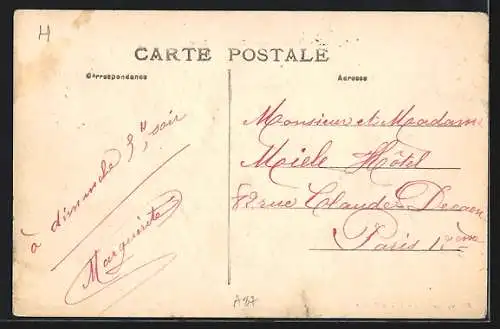 H
CARTE POSTALE
Correspondance
Adresse
à dimanche 3 H, soir
Marguerite
Monsieur et Madame
Miele Hôtel
82 rue Claude Decaen
Paris 12ème
A87